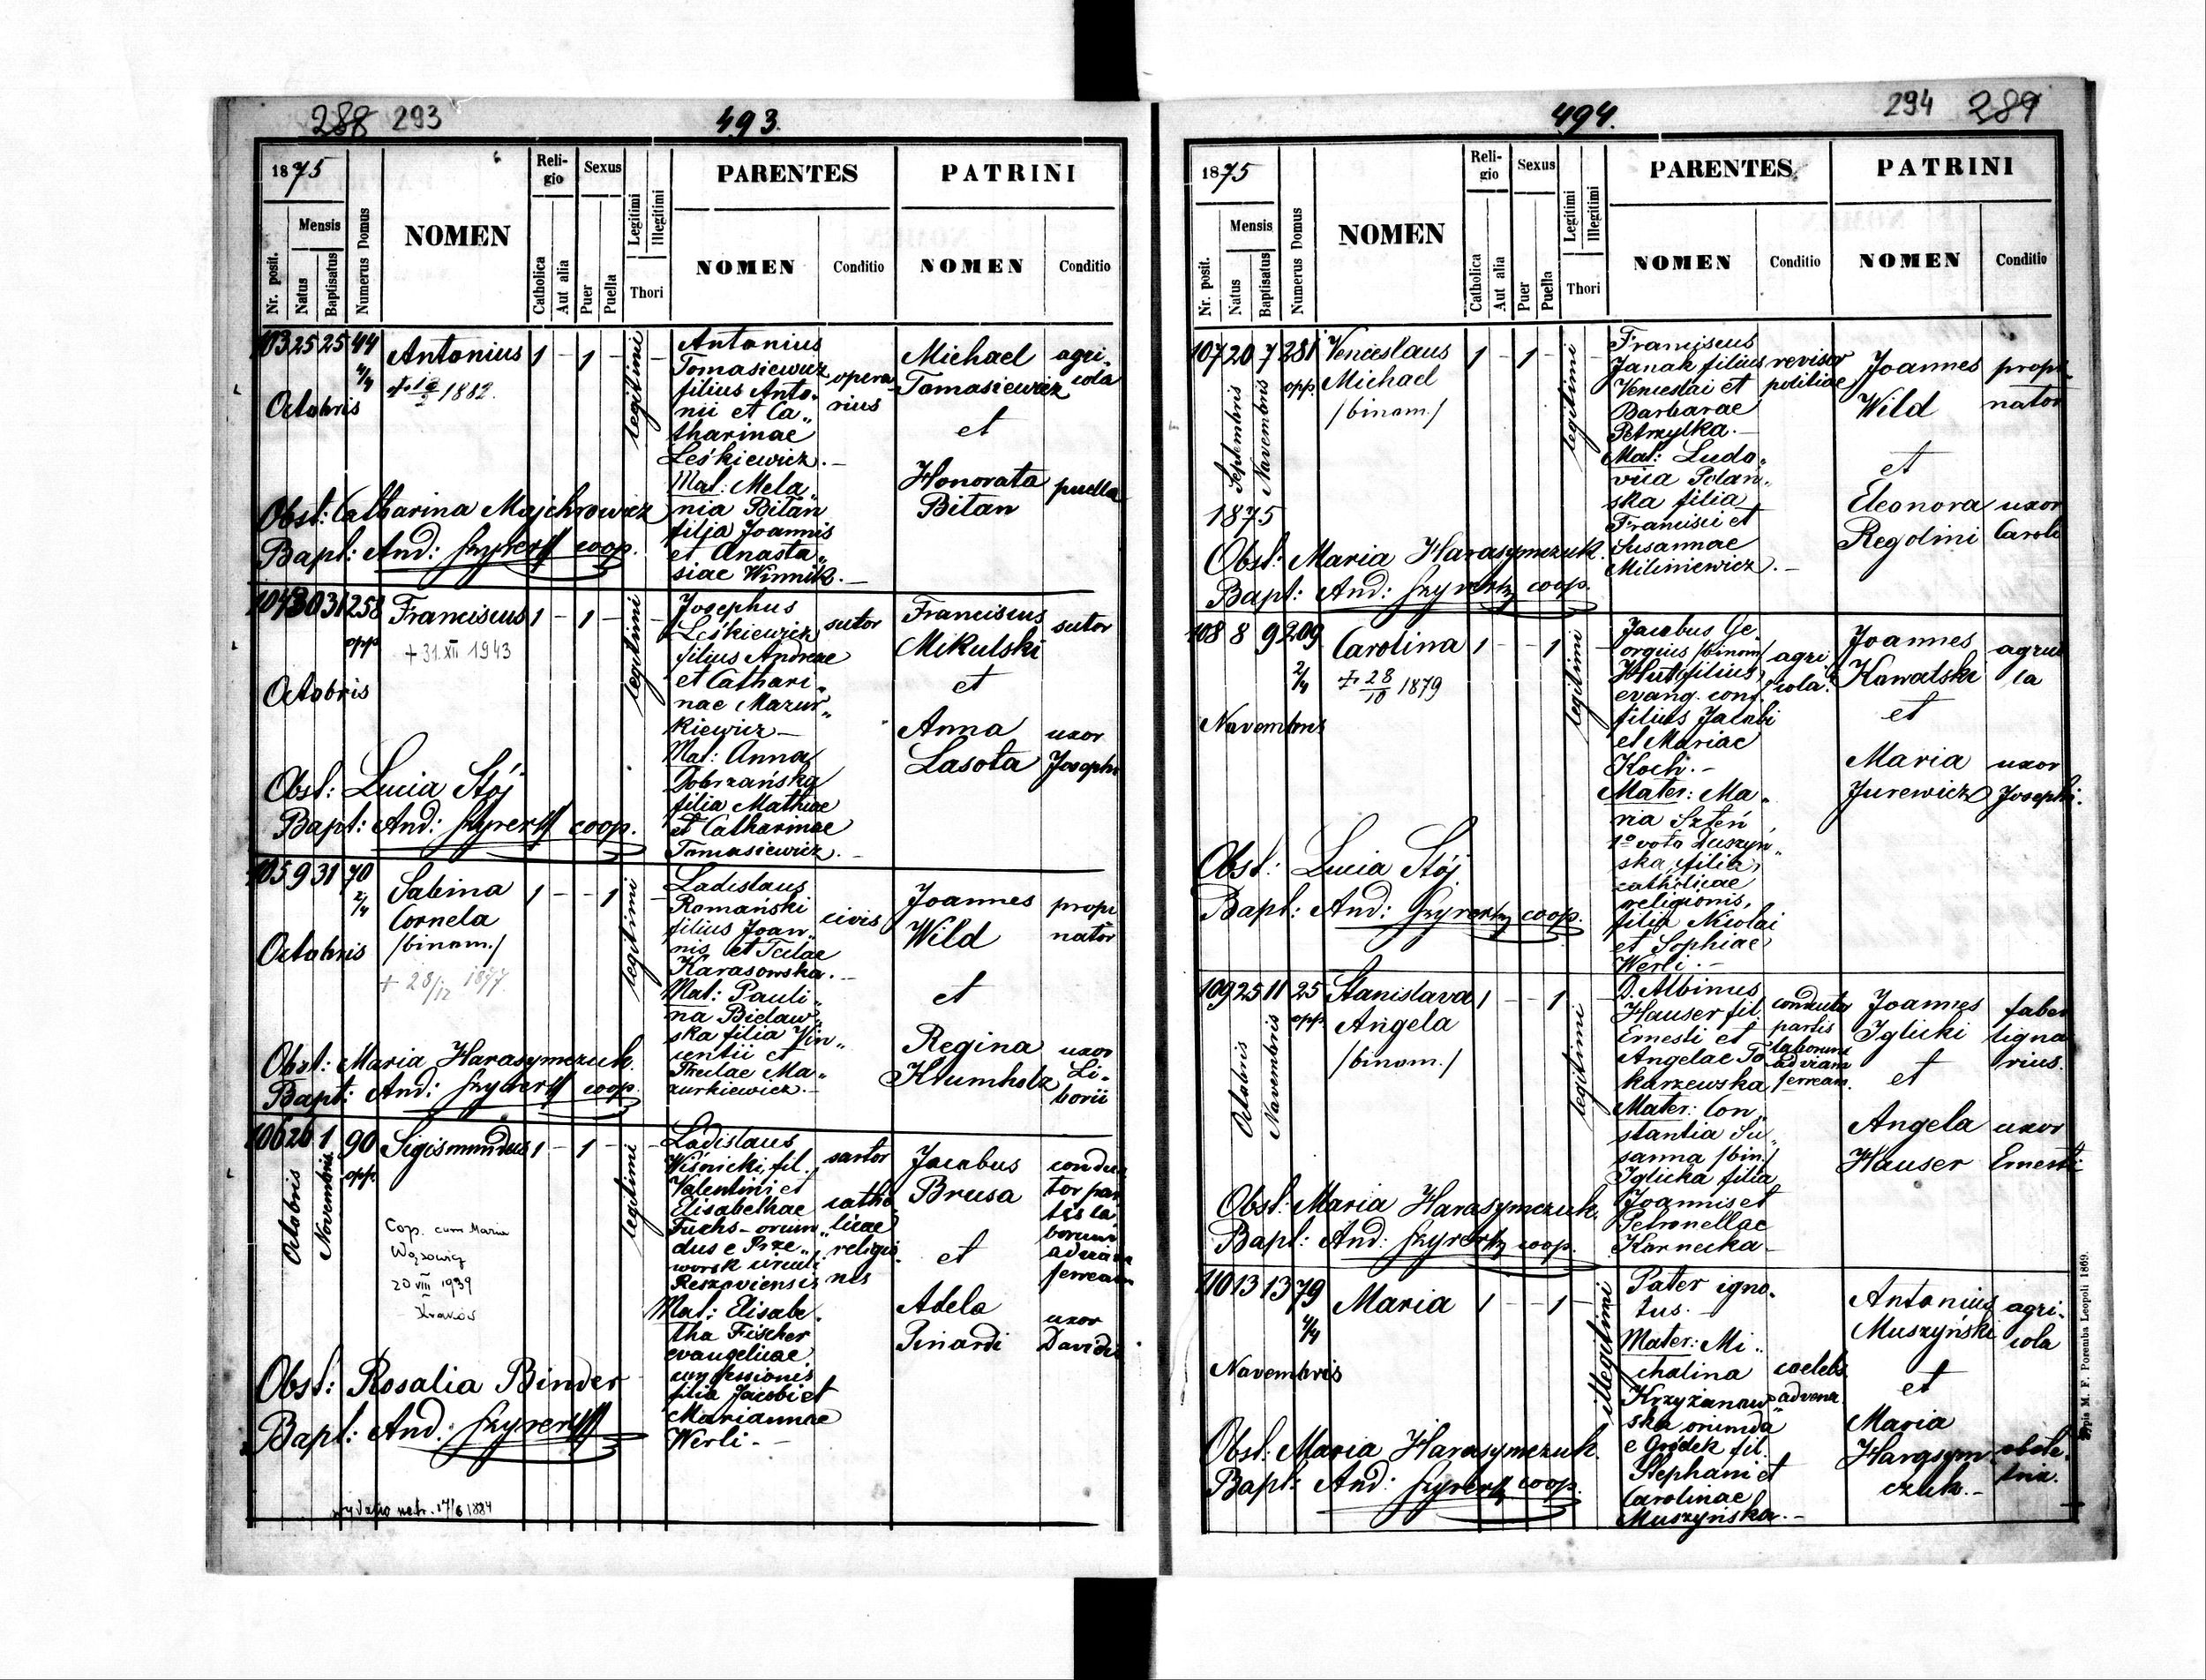 288 293 493.
1875
Nr. posit.
Mensis
Natus
Baptisatus
Numerus Domus
NOMEN
Reli-
gio
Catholica
Aut alia
Sexus
Puer
Puella
Legitimi
Illegitimi
Thori
PARENTES
NOMEN
Conditio
PATRINI
NOMEN
Conditio
103 25 25 44
4/4
Octobris
Antonius 1 - 1 -
1882.
legitimi
Antonius
Tomasiewicz
filius Anto„
nii et Ca„
tharinae
Leśkiewicz.—
Mat: Mela„
nia Bitan
filia Joannis
et Anasta„
siae Winnik.—
opera
rius
Michael
Tomasiewicz
et
Honorata
Bitan
agri„
cola
puella
Obst: Catharina Majchrowicz
Bapt: And: coop.
104 30 31 258
opp.
Octobris
Franciscus 1 - 1 -
+ 31. XII 1943
legitimi
Josephus
Leśkiewicz
filius Andreae
et Cathari„
nae Mazur„
kiewicz—
Mat: Anna
Dobrzańska
filia Mathiae
et Catharinae
Tomasiewicz.—
sutor
Franciscus
Mikulski
et
Anna
Lasota
sutor
uxor
Josephi
Obst: Lucia Stój
Bapt: And: coop.
105 9 31 70
2/4
Octobris
Sabina
Cornela
/binom./
+ 28/12 1877.
1 - - 1
legitimi
Ladislaus
Romański
filius Joan„
nis et Teclae
Karasowska.—
Mat: Pauli„
na Bielaw„
ska filia Vin„
centii et
Theclae Ma„
zurkiewicz.—
civis
Joannes
Wild
et
Regina
Krumholz
propi
nator
uxor
Li„
borii
Obst: Maria Harasymczuk.
Bapt: And: coop.
106 26 1 90
opp.
Octobris
Novembris
Sigismundus 1 - 1 -
Cop. cum Maria
Wąsowicz
20 VIII 1939
Kraków
legitimi
Ladislaus
Wiśnicki, fil.
Valentini et
Elisabethae
Fuchs—oriun„
dus e Prze„
worsk circuli
Reszoviensis
Mat: Elisabe„
tha Fischer
evangelicae
confessionis
filia Jacobi et
Mariannae
Werli.—
sartor
catho
licae
religio
nis
Jacobus
Brusa
et
Adela
Pinardi
conduc
tor par
tis la
borum
ad viam
ferream
uxor
Davidis
Obst: Rosalia Binder
Bapt: And:
wydano metr. 17/6 1884
494. 294 289
1875
Nr. posit.
Mensis
Natus
Baptisatus
Numerus Domus
NOMEN
Reli-
gio
Catholica
Aut alia
Sexus
Puer
Puella
Legitimi
Illegitimi
Thori
PARENTES
NOMEN
Conditio
PATRINI
NOMEN
Conditio
107 20 7 281
opp.
Septembris
Novembris
1875
Venceslaus
Michael
/binom./
1 - 1 -
legitimi
Franciscus
Janak filius
Venceslai et
Barbarae
Petrzylka.—
Mat: Ludo„
vica Polań„
ska filia
Francisci et
Susannae
Miliniewicz.—
revisor
politiae
Joannes
Wild
et
Eleonora
Regolini
propi„
nator
uxor
Caroli
Obst: Maria Harasymczuk.
Bapt: And: coop.
108 8 9 209
2/4
Novembris
Carolina 1 - - 1
+ 28/10 1879
legitimi
Jacobus Ge„
orgius /binom/
Hut filius,
evang. conf.
filius Jacobi
et Mariae
Koch.—
Mater: Ma„
ria Szteń
1º voto Duszyń„
ska, filia,
catholicae
religionis,
filia Nicolai
et Sophiae
Werli.—
agri
cola.
Joannes
Kowalski
et
Maria
Jurewicz
agrico
la
uxor
Josephi.
Obst: Lucia Stój
Bapt: And: coop.
109 25 11 25
opp.
Octobris
Novembris
Stanislava
Angela
/binom./
1 - - 1
legitimi
D. Albinus
Hauser fil.
Ernesti et
Angelae To
karzewska
Mater: Con„
stantia Su„
sanna /bin./
Iglicka filia
Joannis et
Petronellae
Karnecka—
conductor
partis
laborum
ad viam
ferream.
Joannes
Iglicki
et
Angela
Hauser
faber
ligna
rius.
uxor
Ernesti
Obst: Maria Harasymczuk,
Bapt: And: coop.
110 13 13 79
4/4
Novembris
Maria 1 - - 1
illegitimi
Pater igno„
tus.—
Mater: Mi„
chalina
Krzyżanow„
ska oriunda
e Gródek fil.
Stephani et
Carolinae
Muszyńska.—
coelebs
advena
Antonius
Muszyński
et
Maria
Harasym„
czuk.—
agri„
cola
obste„
trix.
Obst: Maria Harasymczuk.
Bapt: And: coop.
Typis M. F. Poremba Leopoli 1869.